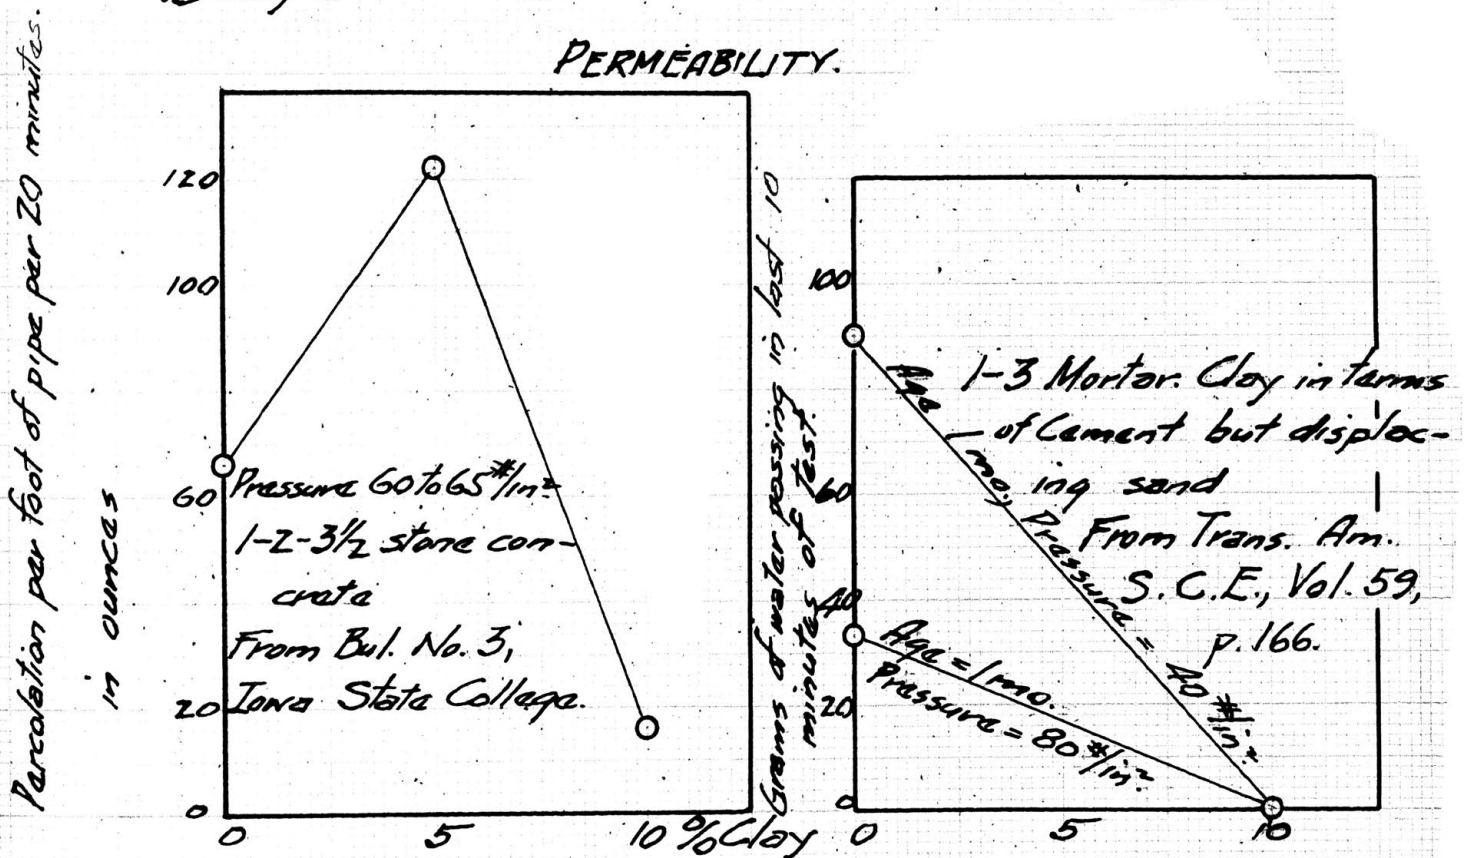 PERMEABILITY.
Percolation per foot of pipe per 20 minutes.
in ounces
120
100
60
20
0
0 5 10 % Clay
Pressure 60 to 65 #/in²
1-2-3½ stone con-
crete
From Bul. No. 3,
Iowa State College.
Grams of water passing in last 10
minutes of test.
100
60
40
20
0
0 5 10
1-3 Mortar. Clay in terms
of Cement but displac-
ing sand
From Trans. Am.
S. C. E., Vol. 59,
p. 166.
Age – mo, Pressure = 40 #/in²
Age = 1 mo.
Pressure = 80 #/in²